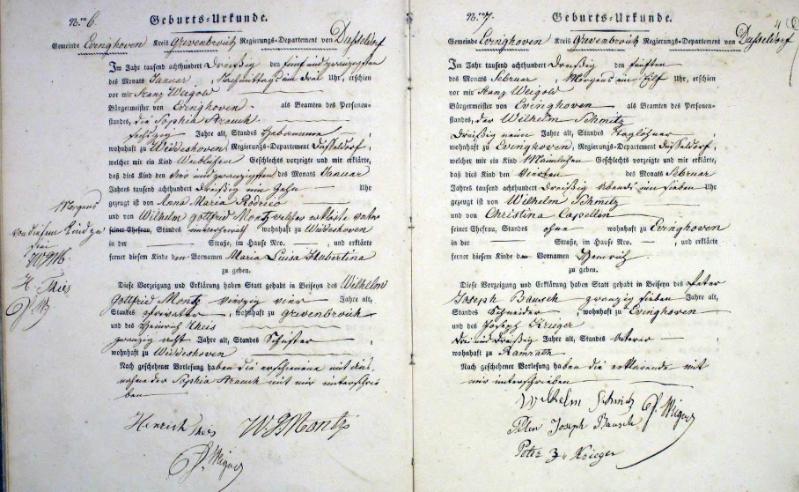 Nro 6. Geburts-Urkunde.
Gemeinde Evinghoven Kreis Grevenbroich Regierungs-Departement von Düsseldorf
Im Jahr tausend achthundert Dreißig den fünf und zwanzigsten
des Monats Januar, Nachmittags um drei Uhr, erschien
vor mir Franz Weigold
Bürgermeister von Evinghoven als Beamten des Personen-
standes, die Sophia
sechszig Jahre alt, Standes Hebamme
wohnhaft zu Widdeshoven, Regierungs-Departement Düsseldorf,
welcher mir ein Kind Weiblichen Geschlechts vorzeigte und mir erklärte,
daß dies Kind den vier und zwanzigsten des Monats Januar
Jahres tausend achthundert Dreißig um Zehn Uhr
gezeugt ist von Anna Maria
und von Wilhelm Gottfried Montz welcher erklärte Vater
seiner Ehefrau, Standes wohnhaft zu Widdeshoven
in der Straße, im Hause Nro. und erklärte
ferner diesem Kinde den Vornamen Maria Luisa Hubertina
zu geben.
Diese Vorzeigung und Erklärung haben Statt gehabt in Beiseyn des Wilhelm
Gottfried Montz vierzig vier Jahre alt,
Standes Verwalter, wohnhaft zu Grevenbroich
und des Heinrich Theis
zwanzig acht Jahre alt, Standes Schuster
wohnhaft zu Widdeshoven
Nach geschehener Vorlesung haben die erschienene mit Aus-
nahme der Sophia mit mir unterschrie
ben
Morgens
von diesem Kind zu
sein
WGM.
H. Theis
Henrich Theis WGMontz
Nro 7. Geburts-Urkunde.
Gemeinde Evinghoven Kreis Grevenbroich Regierungs-Departement von Düsseldorf
Im Jahr tausend achthundert Dreißig den fünften
des Monats Februar, Morgens um Elf Uhr, erschien
vor mir Franz Weigold
Bürgermeister von Evinghoven als Beamten des Personen-
standes, der Wilhelm Schmitz
Dreißig neun Jahre alt, Standes Taglöhner
wohnhaft zu Evinghoven, Regierungs-Departement Düsseldorf,
welcher mir ein Kind Männlichen Geschlechts vorzeigte und mir erklärte,
daß dies Kind den Vierten des Monats Februar
Jahres tausend achthundert Dreißig Abends um sieben Uhr
gezeugt ist von Wilhelm Schmitz
und von Christina Capellen
seiner Ehefrau, Standes ohne wohnhaft zu Evinghoven
in der Straße, im Hause Nro. und erklärte
ferner diesem Kinde den Vornamen Heinrich
zu geben.
Diese Vorzeigung und Erklärung haben Statt gehabt in Beiseyn des Peter
Joseph Bausch zwanzig sieben Jahre alt,
Standes Schneider, wohnhaft zu Evinghoven
und des Joseph Krieger
Drei und Dreißig Jahre alt, Standes
wohnhaft zu Ramrath
Nach geschehener Vorlesung haben die erklärende mit
mir unterschrieben
Wilhelm Schmitz
Peter Joseph Bausch
Peter Krieger